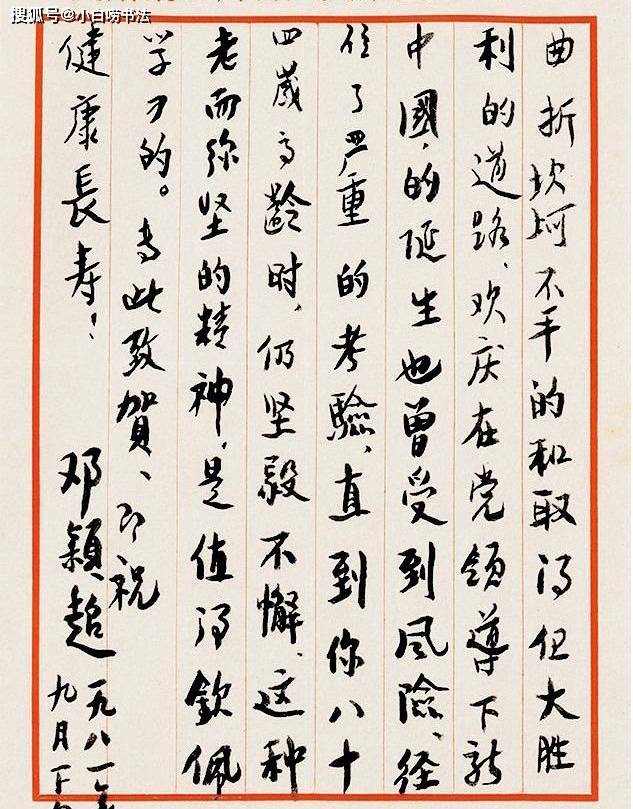 搜狐号@小白唠书法
曲折坎坷不平的和取得但大胜
利的道路、欢庆在党领导下新
中國,的诞生也曾受到风险、经
住了严重的考驗,直到你八十
四歲高齡时,仍坚毅不懈、这种
老而弥坚的精神,是值得欽佩
学习的。专此致賀、即祝
健康長寿!
邓颖超
一九八一年
九月下旬